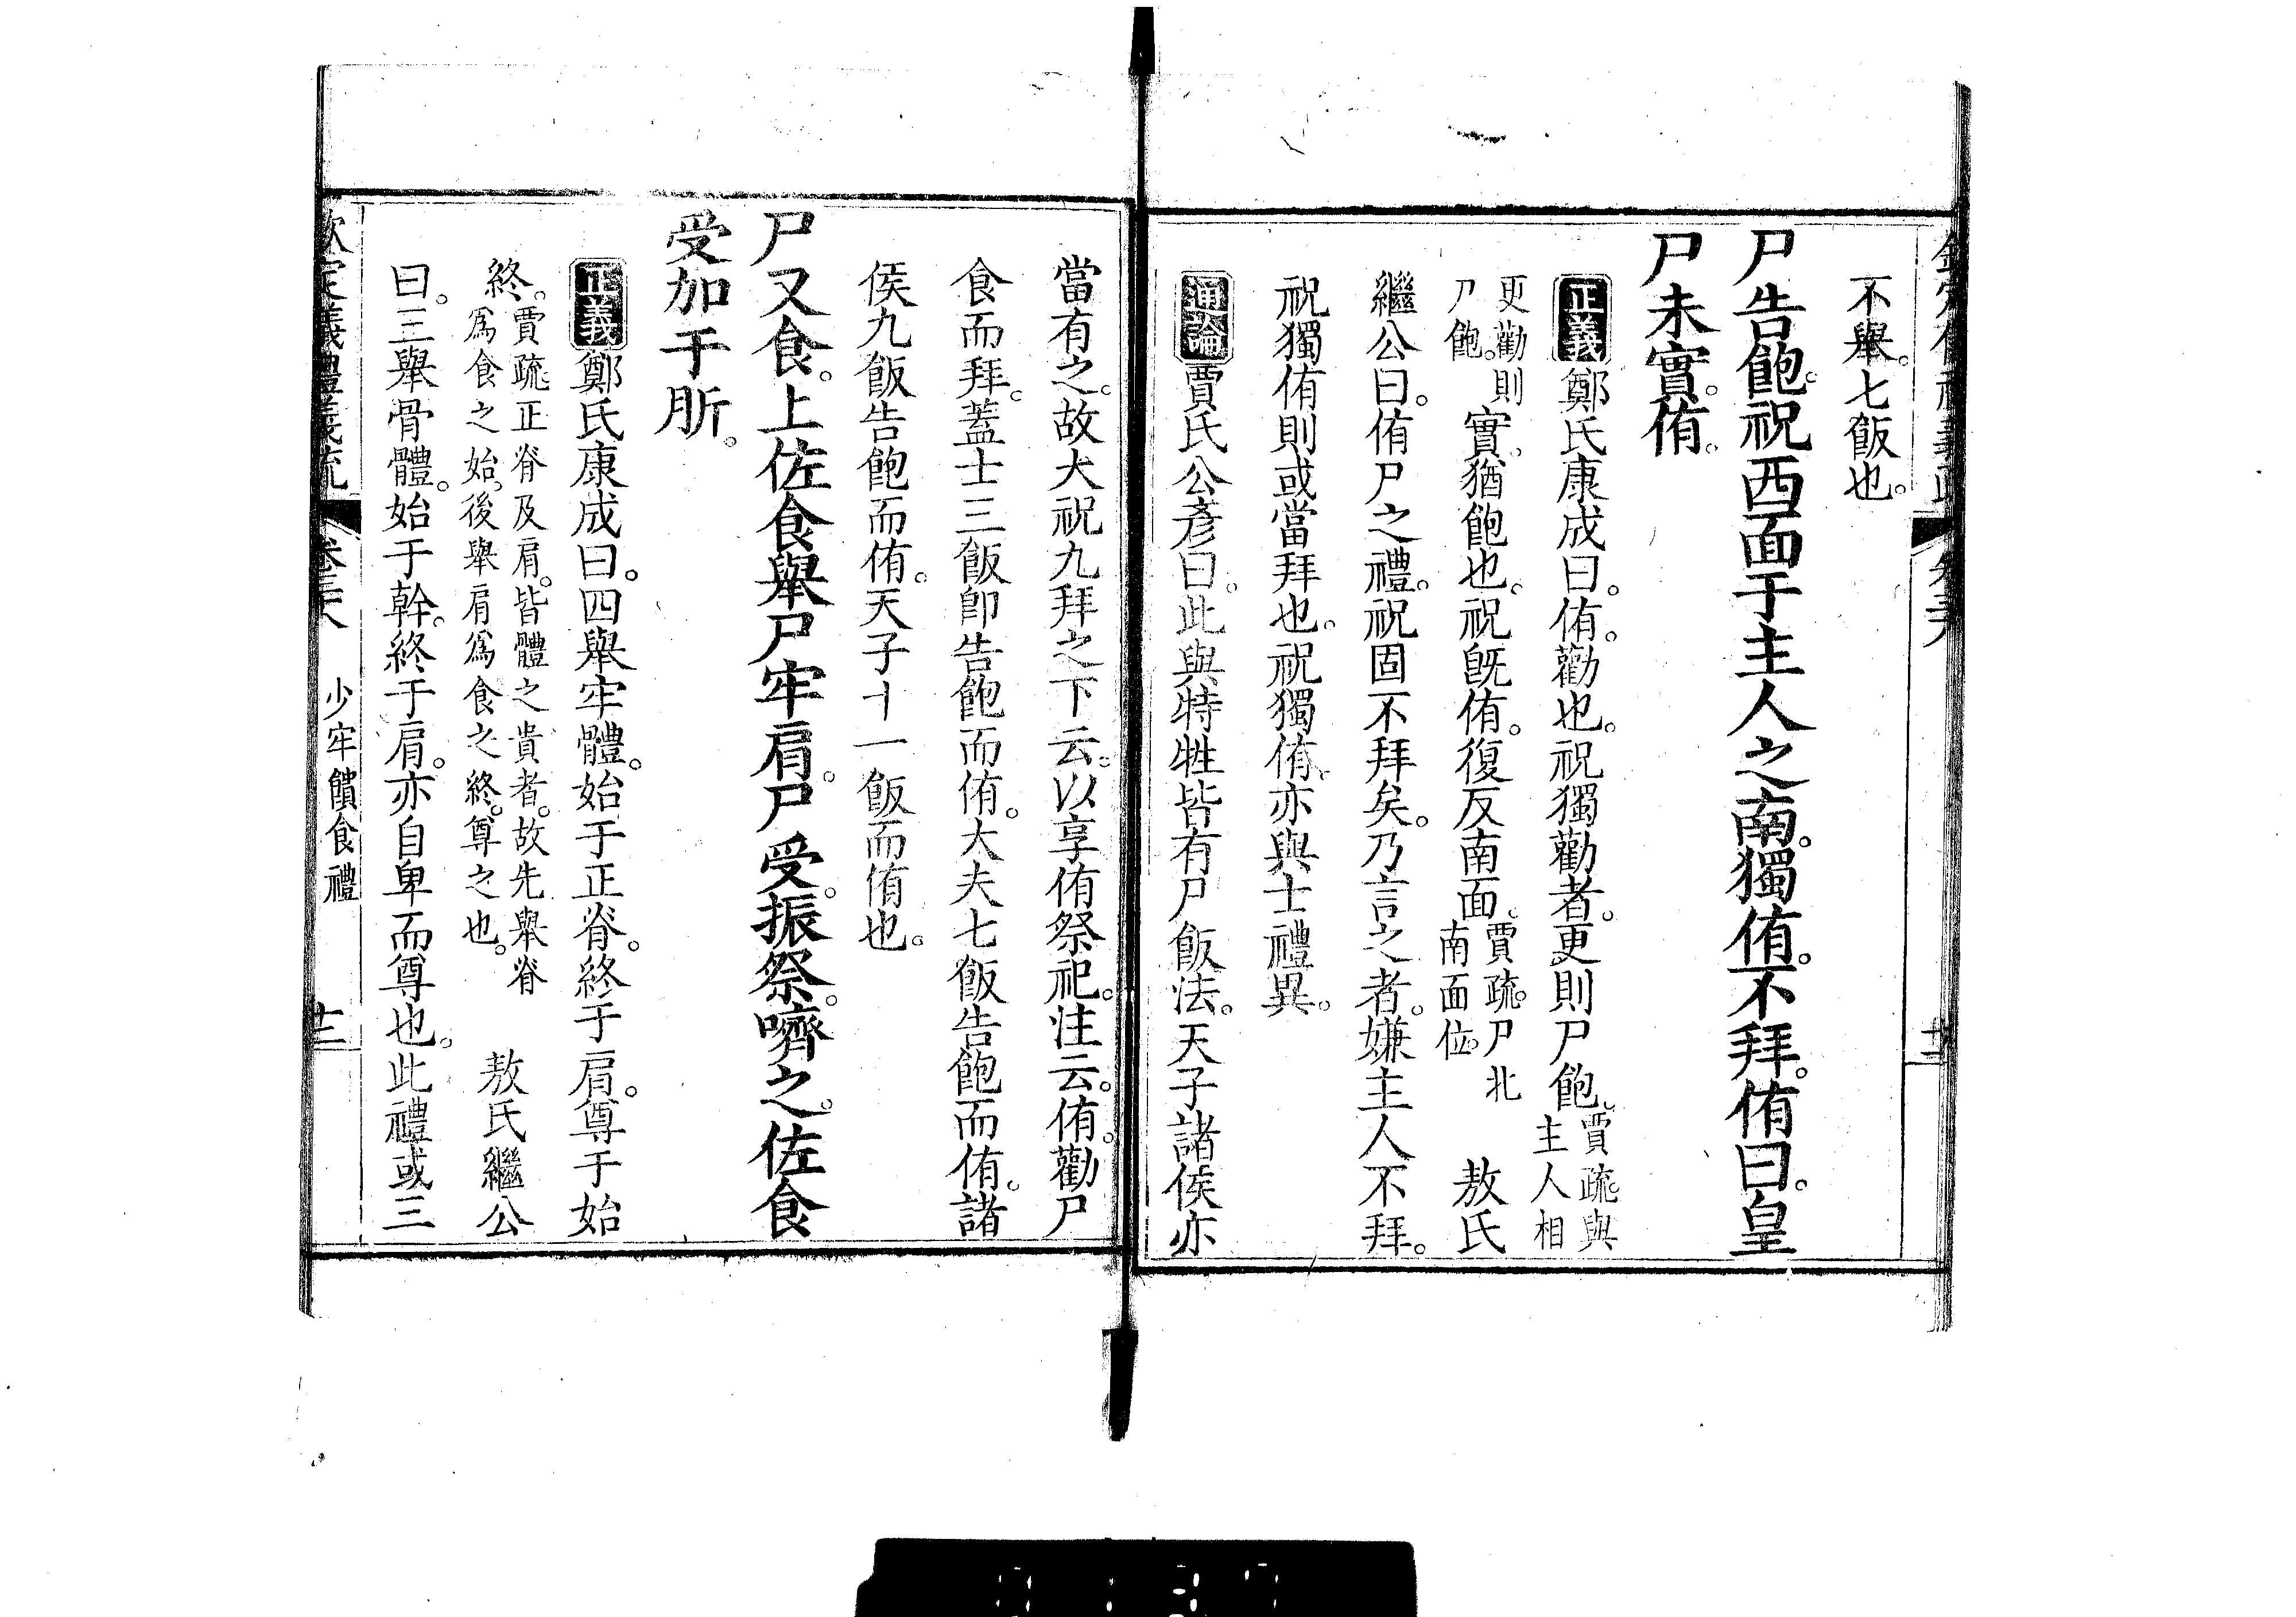 不舉。七飯也。
尸告飽。祝西面于主人之南。獨侑。不拜。侑曰。皇
尸未實。侑。
正義鄭氏康成曰。侑。勸也。祝獨勸者。更則尸飽。賈疏。與主人相
更勸則尸飽。實。猶飽也。祝旣侑。復反南面。賈疏。尸北南面位。敖氏
繼公曰。侑尸之禮。祝固不拜矣。乃言之者。嫌主人不拜。
祝獨侑則或當拜也。祝獨侑。亦與士禮異。
通論賈氏公彥曰。此與特牲皆有尸飯法。天子諸侯亦
當有之。故大祝九拜之下云。以享侑祭祀。注云。侑。勸尸
食而拜。蓋士三飯卽告飽而侑。大夫七飯告飽而侑。諸
侯九飯告飽而侑。天子十一飯而侑也。
尸又食。上佐食舉尸牢肩。尸受。振祭。嚌之。佐食
受加于肵。
正義鄭氏康成曰。四舉牢體。始于正脊。終于肩。尊于始
終。賈疏。正脊及肩。皆體之貴者。故先舉脊爲食之始。後舉肩爲食之終。尊之也。敖氏繼公
曰。三舉骨體。始于幹。終于肩。亦自卑而尊也。此禮或三
欽定儀禮義疏 卷三十八 少牢饋食禮